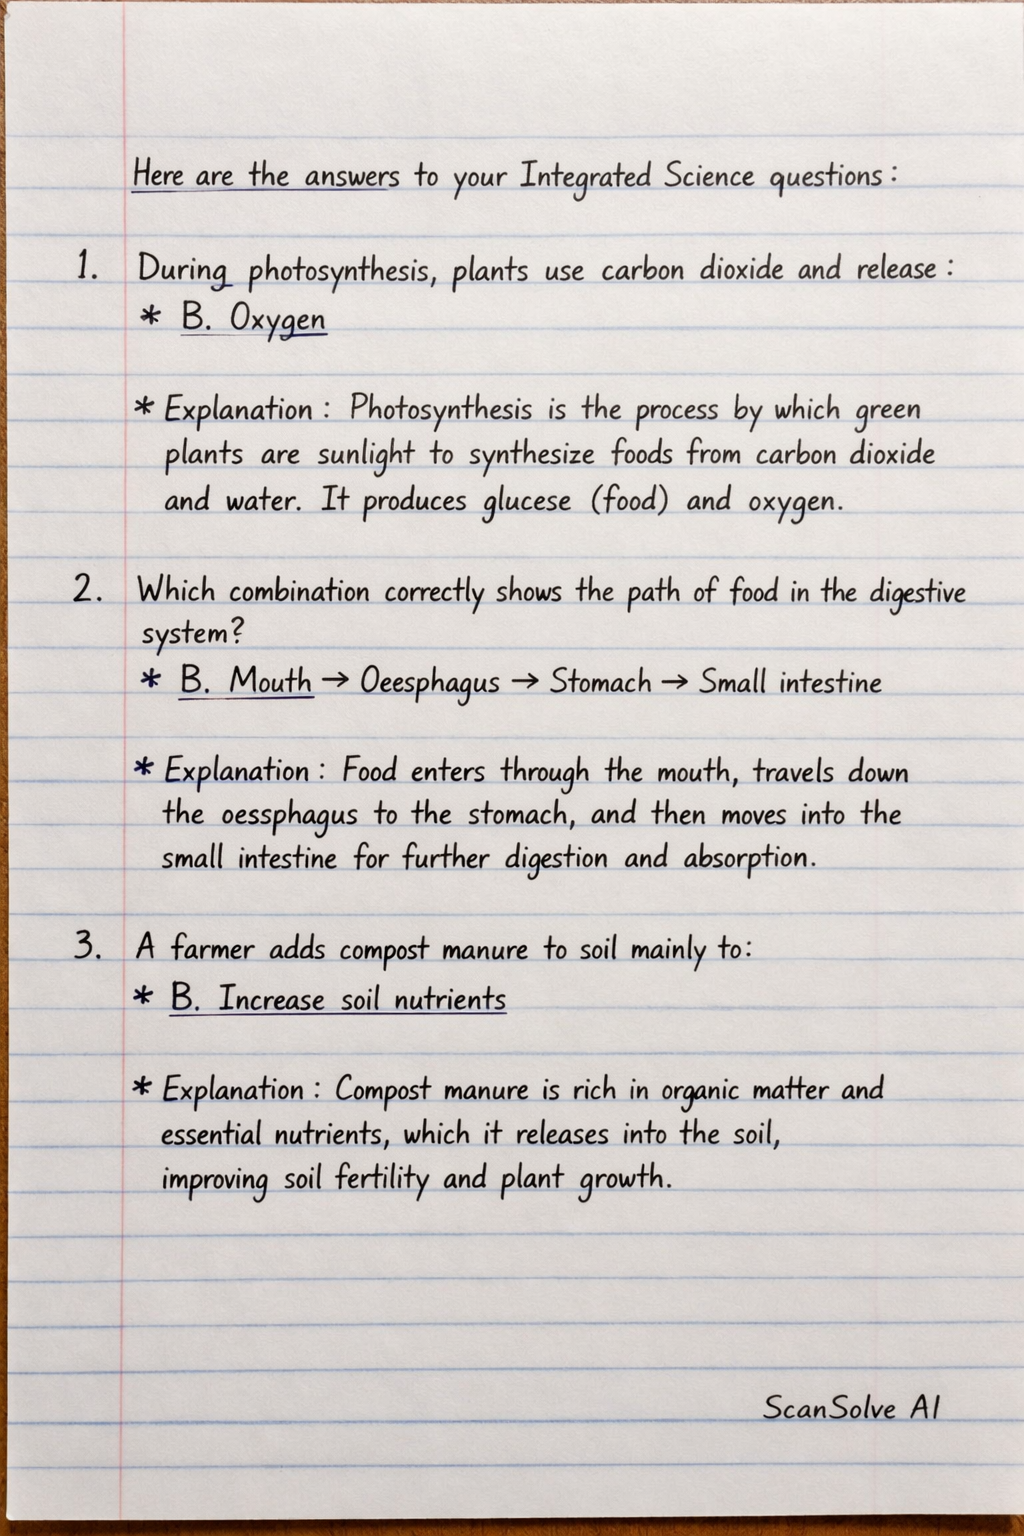 Here are the answers to your Integrated Science questions:
1. During photosynthesis, plants use carbon dioxide and release:
* B. Oxygen
* Explanation: Photosynthesis is the process by which green
plants are sunlight to synthesize foods from carbon dioxide
and water. It produces glucese (food) and oxygen.
2. Which combination correctly shows the path of food in the digestive
system?
* B. Mouth → Oeesphagus → Stomach → Small intestine
* Explanation: Food enters through the mouth, travels down
the oessphagus to the stomach, and then moves into the
small intestine for further digestion and absorption.
3. A farmer adds compost manure to soil mainly to:
* B. Increase soil nutrients
* Explanation: Compost manure is rich in organic matter and
essential nutrients, which it releases into the soil,
improving soil fertility and plant growth.
ScanSolve AI